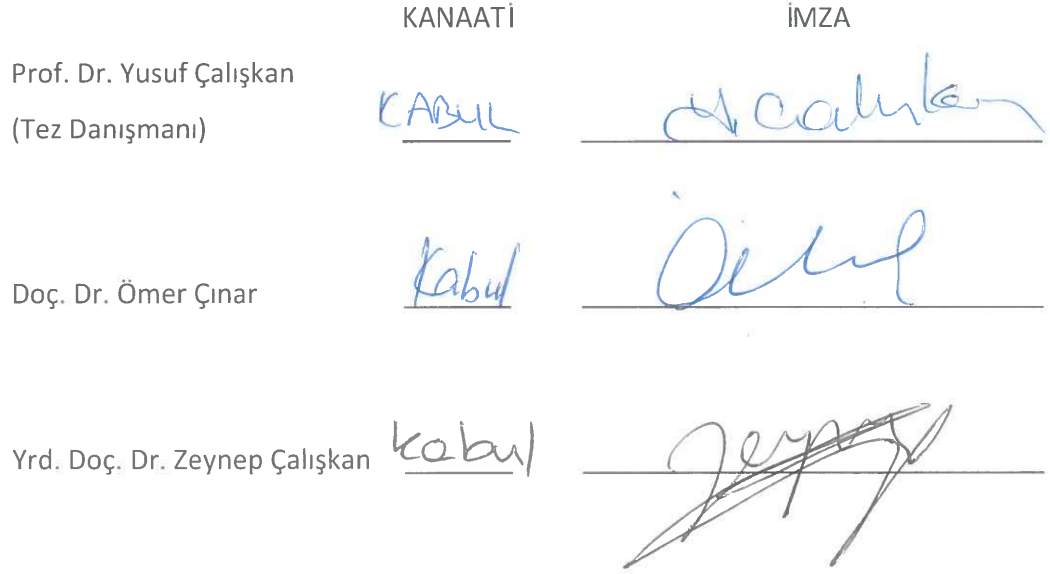 KANAATİ İMZA
Prof. Dr. Yusuf Çalışkan
(Tez Danışmanı) KABUL
Doç. Dr. Ömer Çınar Kabul
Yrd. Doç. Dr. Zeynep Çalışkan kabul